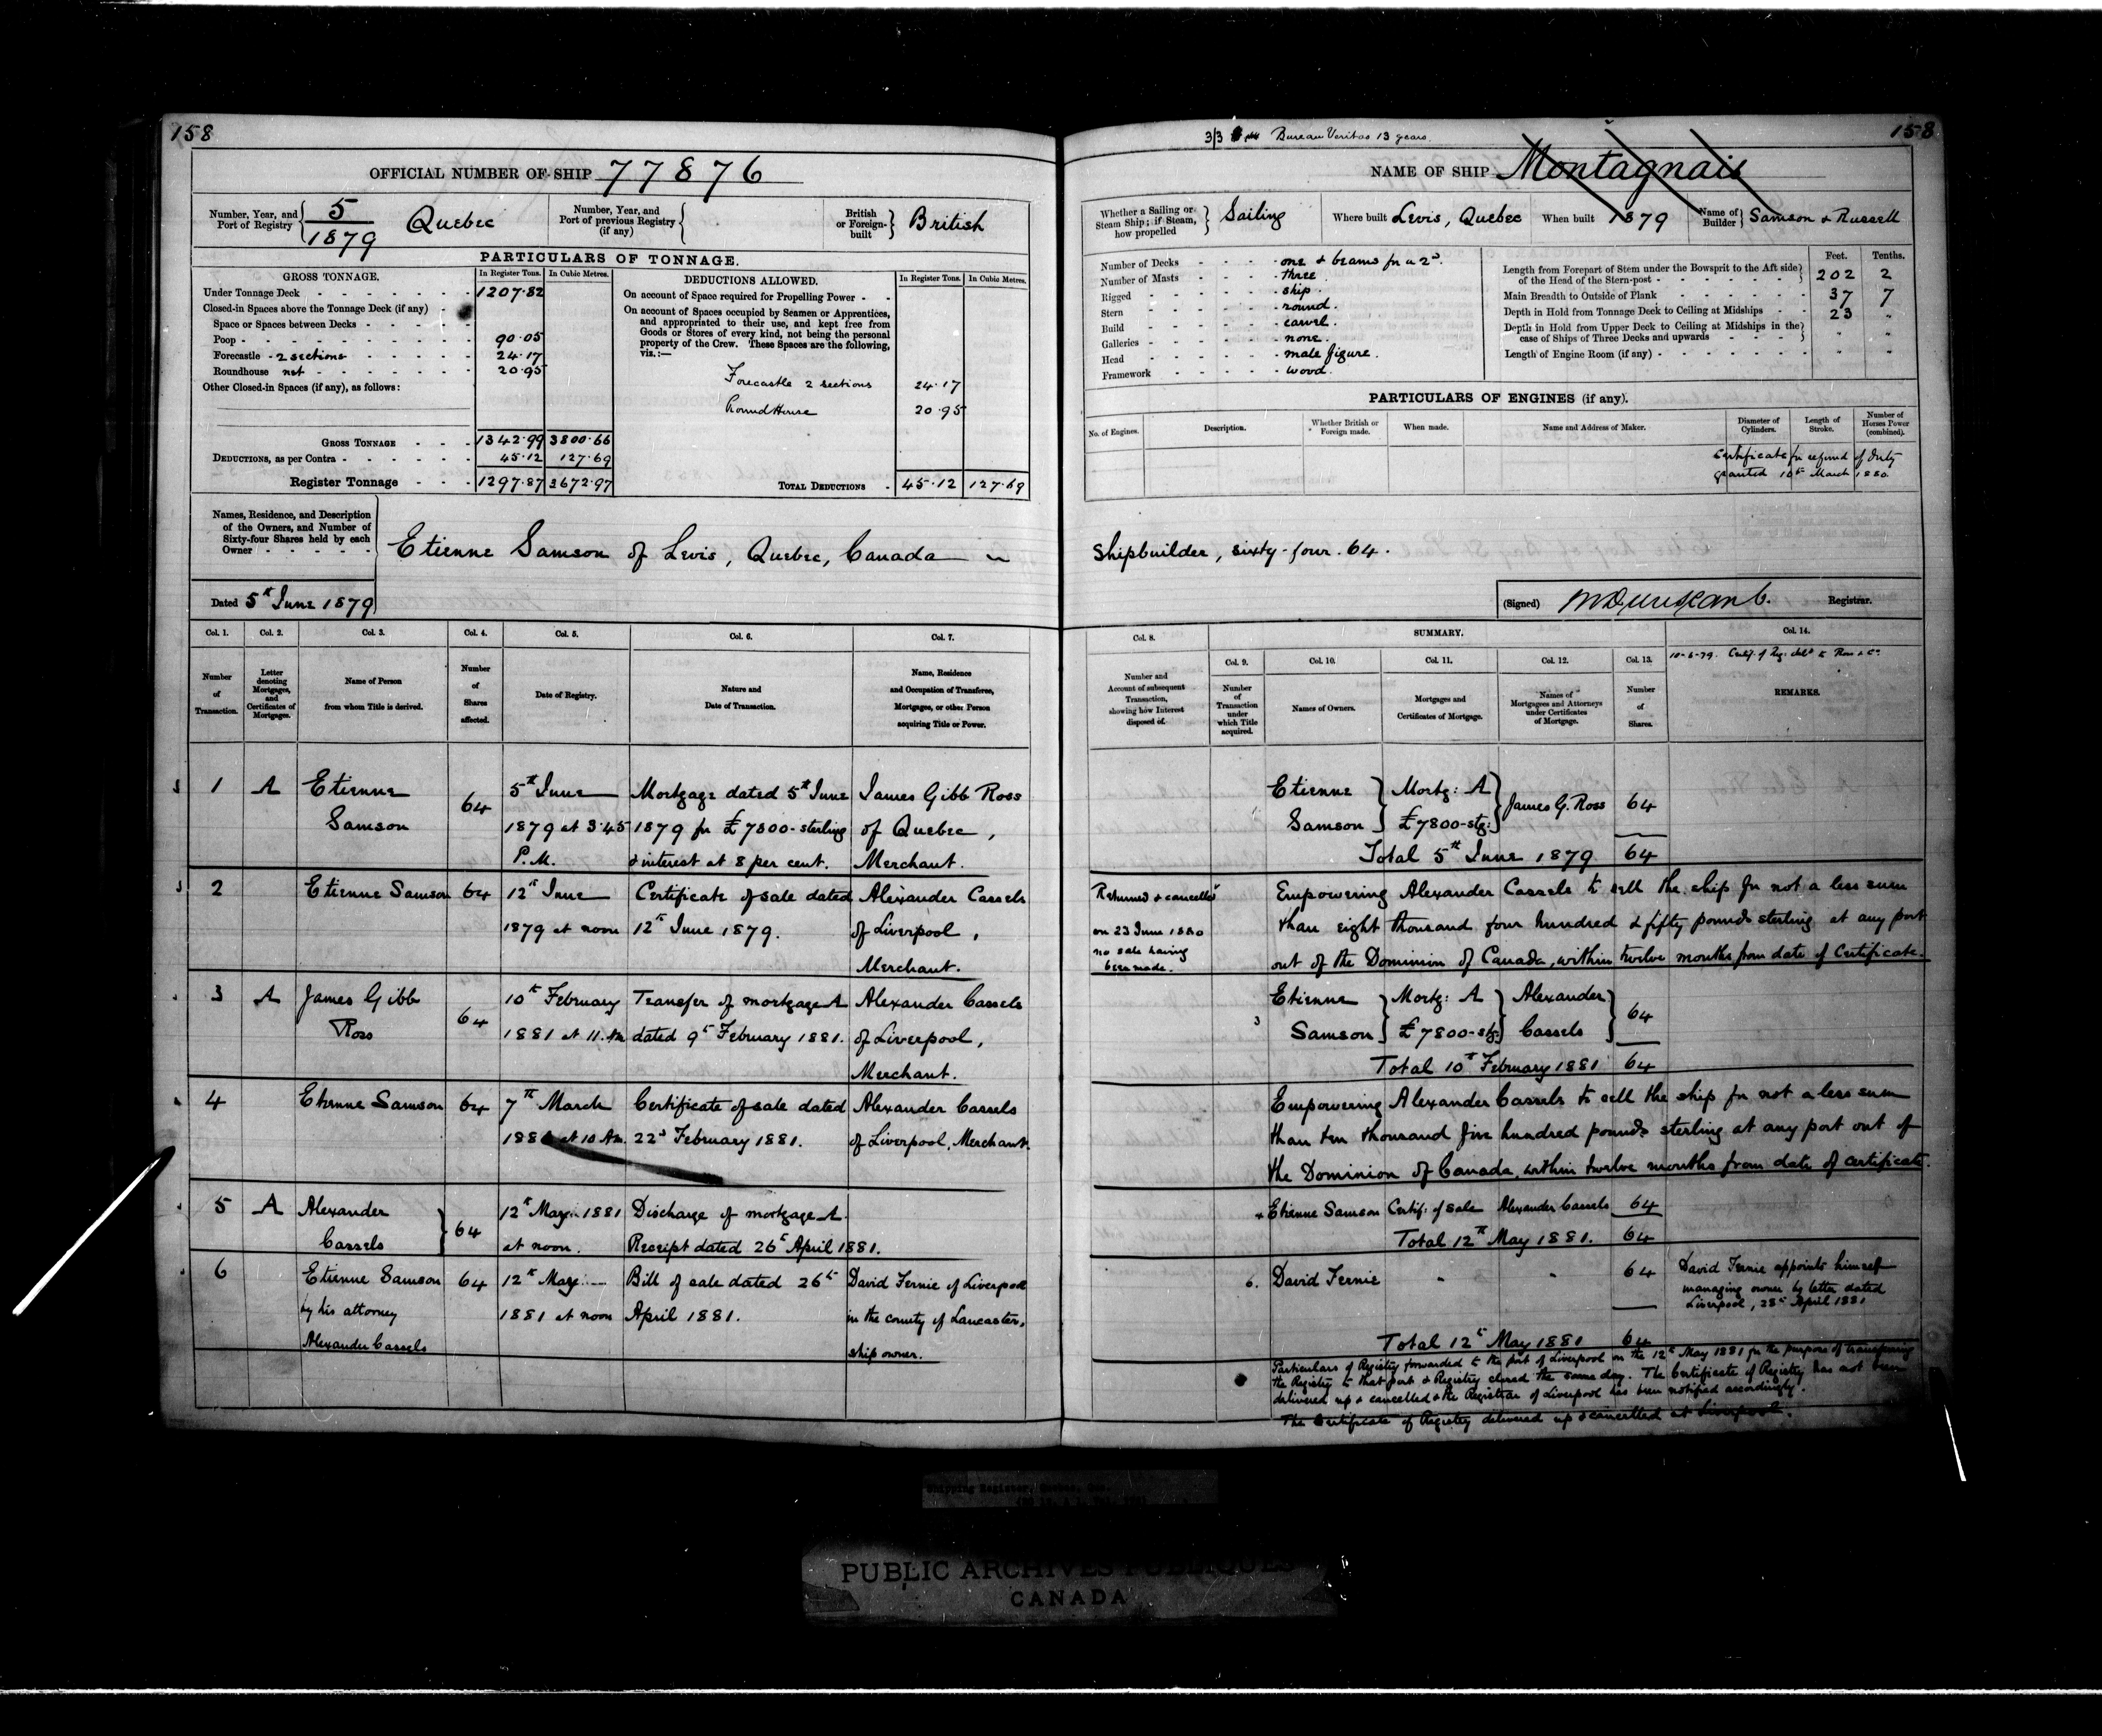 158
OFFICIAL NUMBER OF SHIP 77876
Number, Year, and Port of Registry 5/1879 Quebec
Number, Year, and Port of previous Registry (if any)
British or Foreign-built British
PARTICULARS OF TONNAGE.
GROSS TONNAGE. In Register Tons. In Cubic Metres.
Under Tonnage Deck 1207.82
Closed-in Spaces above the Tonnage Deck (if any)
Space or Spaces between Decks
Poop 90.05
Forecastle - 2 sections 24.17
Roundhouse net 20.95
Other Closed-in Spaces (if any), as follows:
GROSS TONNAGE 1342.99 3800.66
DEDUCTIONS, as per Contra 45.12 127.69
Register Tonnage 1297.87 3672.97
DEDUCTIONS ALLOWED. In Register Tons. In Cubic Metres.
On account of Space required for Propelling Power
On account of Spaces occupied by Seamen or Apprentices,
and appropriated to their use, and kept free from
Goods or Stores of every kind, not being the personal
property of the Crew. These Spaces are the following,
viz.:—
Forecastle 2 sections 24.17
Round House 20.95
TOTAL DEDUCTIONS 45.12 127.69
Names, Residence, and Description
of the Owners, and Number of
Sixty-four Shares held by each
Owner
Etienne Samson of Levis, Quebec, Canada
Dated 5th June 1879
Col. 1. Col. 2. Col. 3. Col. 4. Col. 5. Col. 6. Col. 7.
Number of Transaction.
Letter denoting Mortgages, and Certificates of Mortgages.
Name of Person from whom Title is derived.
Number of Shares affected.
Date of Registry.
Nature and Date of Transaction.
Name, Residence and Occupation of Transferee, Mortgagee, or other Person acquiring Title or Power.
1 A Etienne Samson 64
5th June 1879 at 3.45 P.M.
Mortgage dated 5th June 1879 for £7800- sterling & interest at 8 per cent.
James Gibb Ross of Quebec, Merchant.
2 Etienne Samson 64
12th June 1879 at noon
Certificate of sale dated 12th June 1879.
Alexander Cassels of Liverpool, Merchant.
3 A James Gibb Ross 64
10th February 1881 at 11. Am
Transfer of mortgage A dated 9th February 1881.
Alexander Cassels of Liverpool, Merchant.
4 Etienne Samson 64
7th March 1881 at 10 Am.
Certificate of sale dated 22d February 1881.
Alexander Cassels of Liverpool, Merchant.
5 A Alexander Cassels 64
12th May 1881 at noon.
Discharge of mortgage A.
Receipt dated 26th April 1881.
6 Etienne Samson by his attorney Alexander Cassels 64
12th May 1881 at noon
Bill of sale dated 26th April 1881.
David Fernie of Liverpool in the county of Lancaster, ship owner.
3/3 Bureau Veritas 13 years.
158
NAME OF SHIP Montagnais
Whether a Sailing or Steam Ship; if Steam, how propelled Sailing
Where built Levis, Quebec
When built 1879
Name of Builder Samson & Russell
Number of Decks one & beams for a 2d.
Number of Masts three
Rigged ship.
Stern round.
Build carvel.
Galleries none.
Head male figure.
Framework wood.
Feet. Tenths.
Length from Forepart of Stem under the Bowsprit to the Aft side of the Head of the Stern-post 202 2
Main Breadth to Outside of Plank 37 7
Depth in Hold from Tonnage Deck to Ceiling at Midships 23 "
Depth in Hold from Upper Deck to Ceiling at Midships in the case of Ships of Three Decks and upwards " "
Length of Engine Room (if any) " "
PARTICULARS OF ENGINES (if any).
No. of Engines. Description. Whether British or Foreign made. When made. Name and Address of Maker. Diameter of Cylinders. Length of Stroke. Number of Horses Power (combined).
Certificate for refund of duty
granted 10th March 1880.
Shipbuilder, sixty-four. 64.
(Signed) Registrar.
Col. 8. SUMMARY. Col. 14.
Col. 9. Col. 10. Col. 11. Col. 12. Col. 13.
Number and Account of subsequent Transaction, showing how Interest disposed of.
Number of Transaction under which Title acquired.
Names of Owners.
Mortgages and Certificates of Mortgage.
Names of Mortgagees and Attorneys under Certificates of Mortgage.
Number of Shares.
10-6-79. Certif. of Reg. deld to Ross & Co.
REMARKS.
Etienne Samson Mortg: A £7800-stg: James G. Ross 64
Total 5th June 1879 64
Returned & cancelled
on 23 June 1880
no sale having
been made.
Empowering Alexander Cassels to sell the ship for not a less sum
than eight thousand four hundred & fifty pounds sterling at any port
out of the Dominion of Canada, within twelve months from date of Certificate.
3 Etienne Samson Mortg: A £7800-stg: Alexander Cassels 64
Total 10th February 1881 64
Empowering Alexander Cassels to sell the ship for not a less sum
than ten thousand five hundred pounds sterling at any port out of
the Dominion of Canada, within twelve months from date of certificate.
Etienne Samson Certif: of sale Alexander Cassels 64
Total 12th May 1881. 64
6. David Fernie " " 64
David Fernie appoints himself
managing owner by letter dated
Liverpool, 28th April 1881
Total 12th May 1881 64
Particulars of Registry forwarded to the port of Liverpool on the 12th May 1881 for the purpose of transferring
the Registry to that port & Registry closed the same day. The Certificate of Registry has not been
delivered up & cancelled & the Registrar of Liverpool has been notified accordingly.
The Certificate of Registry delivered up & cancelled at Liverpool.
Shipping Register, Quebec, Que.
PUBLIC ARCHIVES PUBLIQUES
CANADA